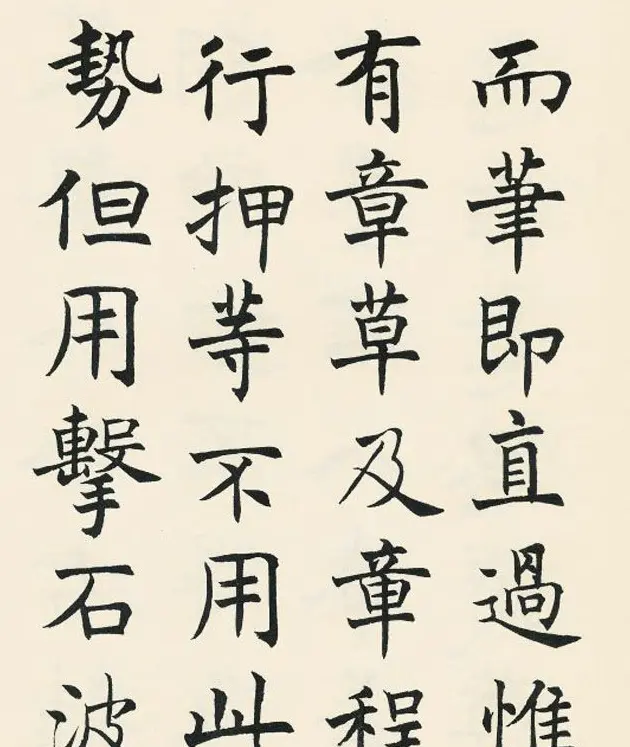 而筆即直過惟
有章草及章程
行押等不用此
勢但用擊石波